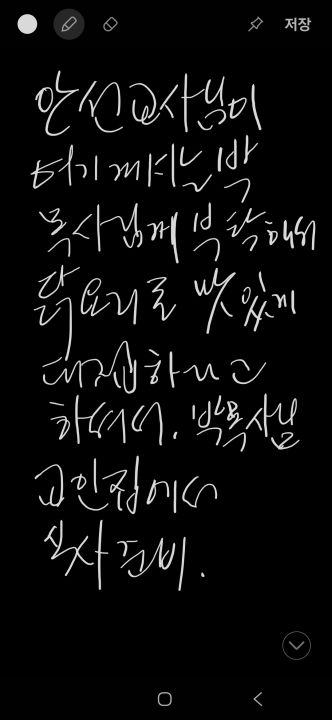 저장
안선교사님이
터기 계시는 박
목사님께 부탁해서
닭요리로 맛있게
대접하라고
하셔서. 박목사님
교인집에서
식사 준비.